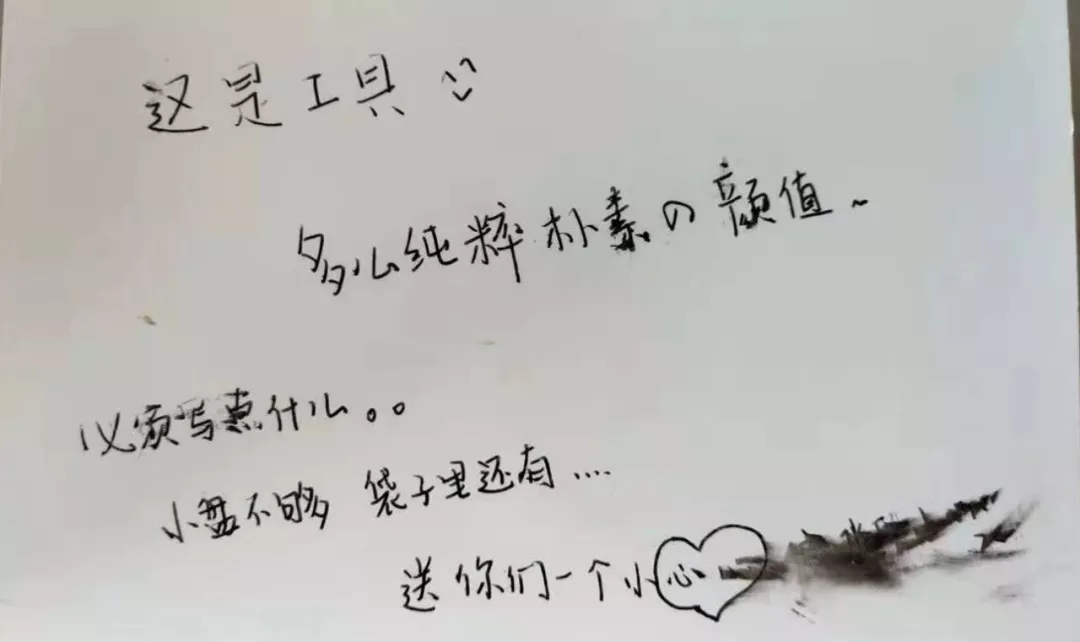 这是工具
多么纯粹朴素の颜值~
必须写点什么。。
小盘不够 袋子里还有....
送你们一个小心